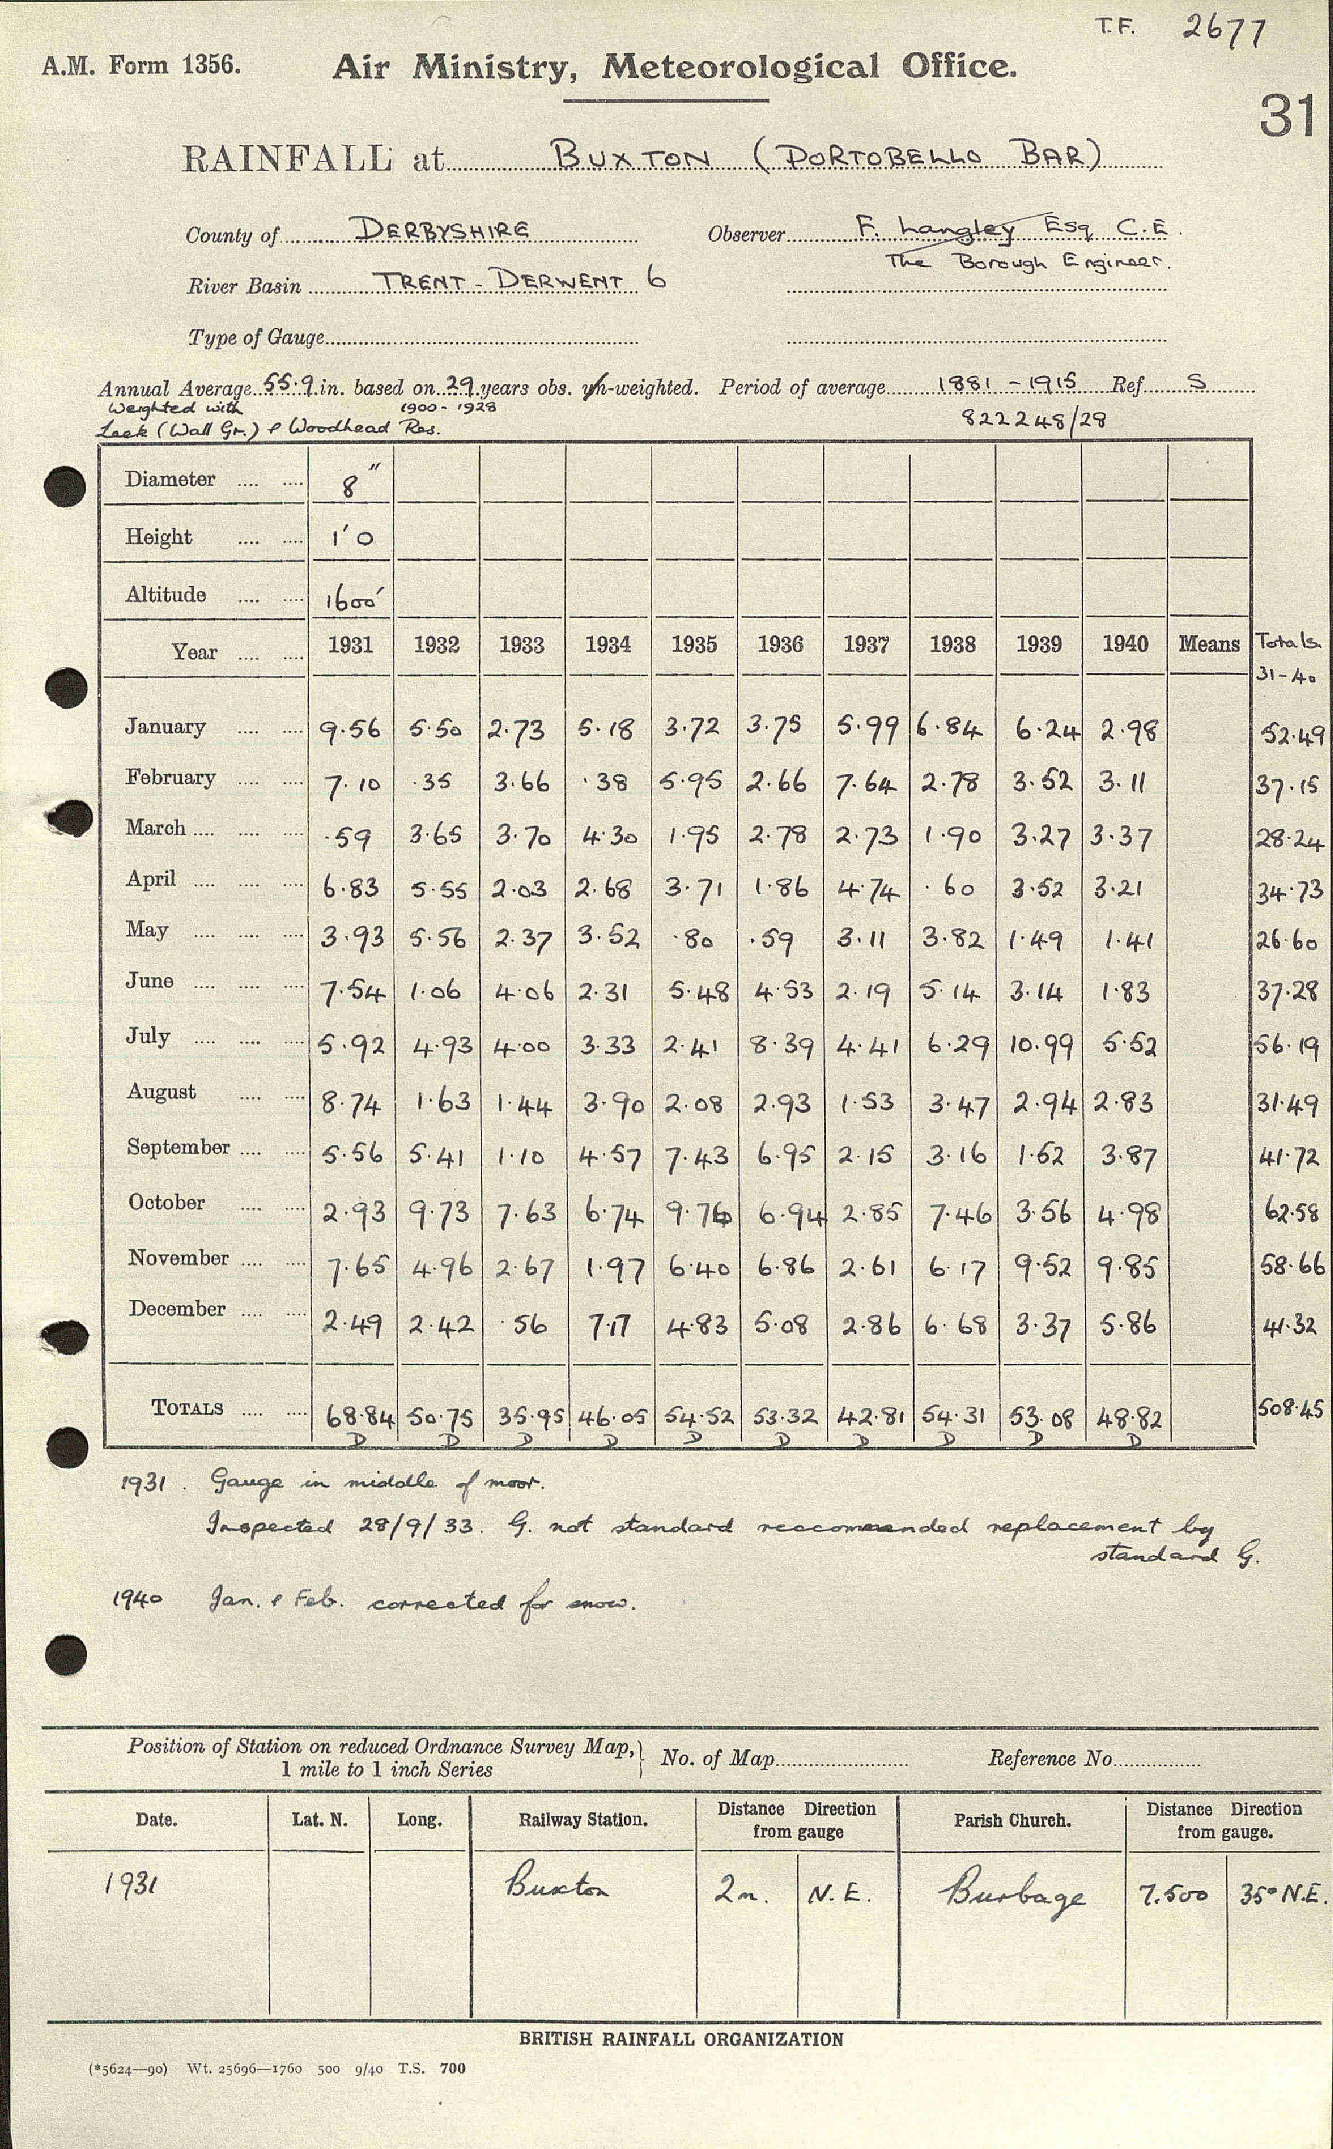 T.F. 2677
A.M. Form 1356. Air Ministry, Meteorological Office.
31
RAINFALL at BUXTON (PORTOBELLO BAR)
County of DERBYSHIRE Observer F. Langley Esq C.E.
The Borough Engineer.
River Basin TRENT - DERWENT 6
Type of Gauge
Annual Average 55.9 in. based on 29 years obs. un-weighted. Period of average 1881 - 1915 Ref. S
Weighted with 1900 - 1928 822248/28
Leek (Wall Gr.) & Woodhead Res.
Diameter 8"
Height 1'0
Altitude 1600'
Year 1931 1932 1933 1934 1935 1936 1937 1938 1939 1940 Means Totals 31-40
January 9.56 5.50 2.73 5.18 3.72 3.75 5.99 6.84 6.24 2.98 52.49
February 7.10 .35 3.66 .38 5.95 2.66 7.64 2.78 3.52 3.11 37.15
March .59 3.65 3.70 4.30 1.95 2.78 2.73 1.90 3.27 3.37 28.24
April 6.83 5.55 2.03 2.68 3.71 1.86 4.74 .60 3.52 3.21 34.73
May 3.93 5.56 2.37 3.52 .80 .59 3.11 3.82 1.49 1.41 26.60
June 7.54 1.06 4.06 2.31 5.48 4.53 2.19 5.14 3.14 1.83 37.28
July 5.92 4.93 4.00 3.33 2.41 8.39 4.41 6.29 10.99 5.52 56.19
August 8.74 1.63 1.44 3.90 2.08 2.93 1.53 3.47 2.94 2.83 31.49
September 5.56 5.41 1.10 4.57 7.43 6.95 2.15 3.16 1.52 3.87 41.72
October 2.93 9.73 7.63 6.74 9.76 6.94 2.85 7.46 3.56 4.98 62.58
November 7.65 4.96 2.67 1.97 6.40 6.86 2.61 6.17 9.52 9.85 58.66
December 2.49 2.42 .56 7.17 4.83 5.08 2.86 6.68 3.37 5.86 41.32
TOTALS 68.84 50.75 35.95 46.05 54.52 53.32 42.81 54.31 53.08 48.82 508.45
D D D D D D D D D D
1931. Gauge in middle of moor.
Inspected 28/9/33. G. not standard reccommended replacement by
standard G.
1940 Jan. & Feb. corrected for snow.
Position of Station on reduced Ordnance Survey Map, 1 mile to 1 inch Series No. of Map Reference No.
Date. Lat. N. Long. Railway Station. Distance Direction from gauge Parish Church. Distance Direction from gauge.
1931 Buxton 2m. N.E. Burbage 7.500 35° N.E.
BRITISH RAINFALL ORGANIZATION
(*5624—90) Wt. 25696—1760 500 9/40 T.S. 700